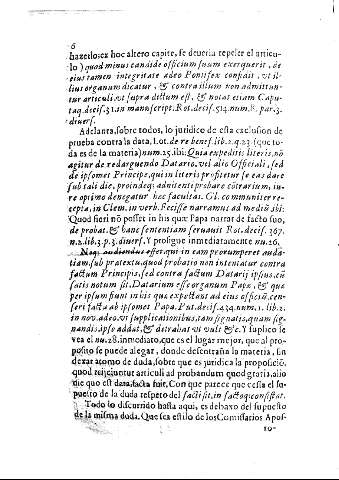 6
hazerlo; ex hoc altero capite, se deueria repeler el articu-
lo) quod minus candide officium suum exerquerit, de
eius tamen integritate adeo Pontifex confidit, vt il-
lius organum dicatur, & contra illum non admittun-
tur articuli, vt supra dictum est, & notat etiam Capu-
taq. decis. 31. in manscript. Rot. decis. 514. num. 8. par. 3.
diuers.
Adelanta, sobre todos, lo juridico de esta exclusion de
prueba contra la data, Lot. de re benef. lib. 2. q. 23. (que to-
da es de la materia) num. 25. ibi: Quia expeditis literis, nō
agitur de redarguendo Datario, vel alio Officiali, sed
de ipsomet Principe, qui in literis profitetur se eas dare
sub tali die, proindeq; adnitente probare cōtrarium, iu-
re optimo denegatur hæc facultas. Gl. communiter re-
cepta, in Clem. in verb. Fecisse narramus, ad mediū ibi:
Quod fieri nō posset in his quæ Papa narrat de facto suo,
de probat. & hanc sententiam seruauit Rot. decis. 367.
n. 2. lib. 3. p. 3. diuers. Y prosigue inmediatamente nu. 26.
Neq; audiendus esset qui in eam prorumperet auda-
tiam, sub prætextu, quod probatio non intentatur contra
factum Principis, sed contra factum Datarij ipsius, cū
satis notum sit, Datarium esse organum Papæ, & quæ
per ipsum fiunt in his quæ expectant ad eius officiū, cen-
seri facta ab ipsomet Papa. Put. decis. 434. num. 1. lib. 2.
in nov. adeo, vt supplicationibus, tam signatis, quam sig-
nandis, ipse addat, & detrahat vt vult &c. Y suplico se
vea el nu. 28. inmediato, que es el lugar mejor, que al pro-
posito se puede alegar, donde desentraña la materia, sin
dexar atomo de duda, sobre que es juridica la proposiciō,
quod reijciuntur articuli ad probandum quod gratia, alio
die quo est data, facta fuit. Con que parece que cessa el su-
puesto de la duda respeto del facti sit, in facto q; consistat.
Todo lo discurrido hasta aqui, es debaxo del supuesto
de la misma duda. Que sea estilo de los Comissarios Apos-
to-